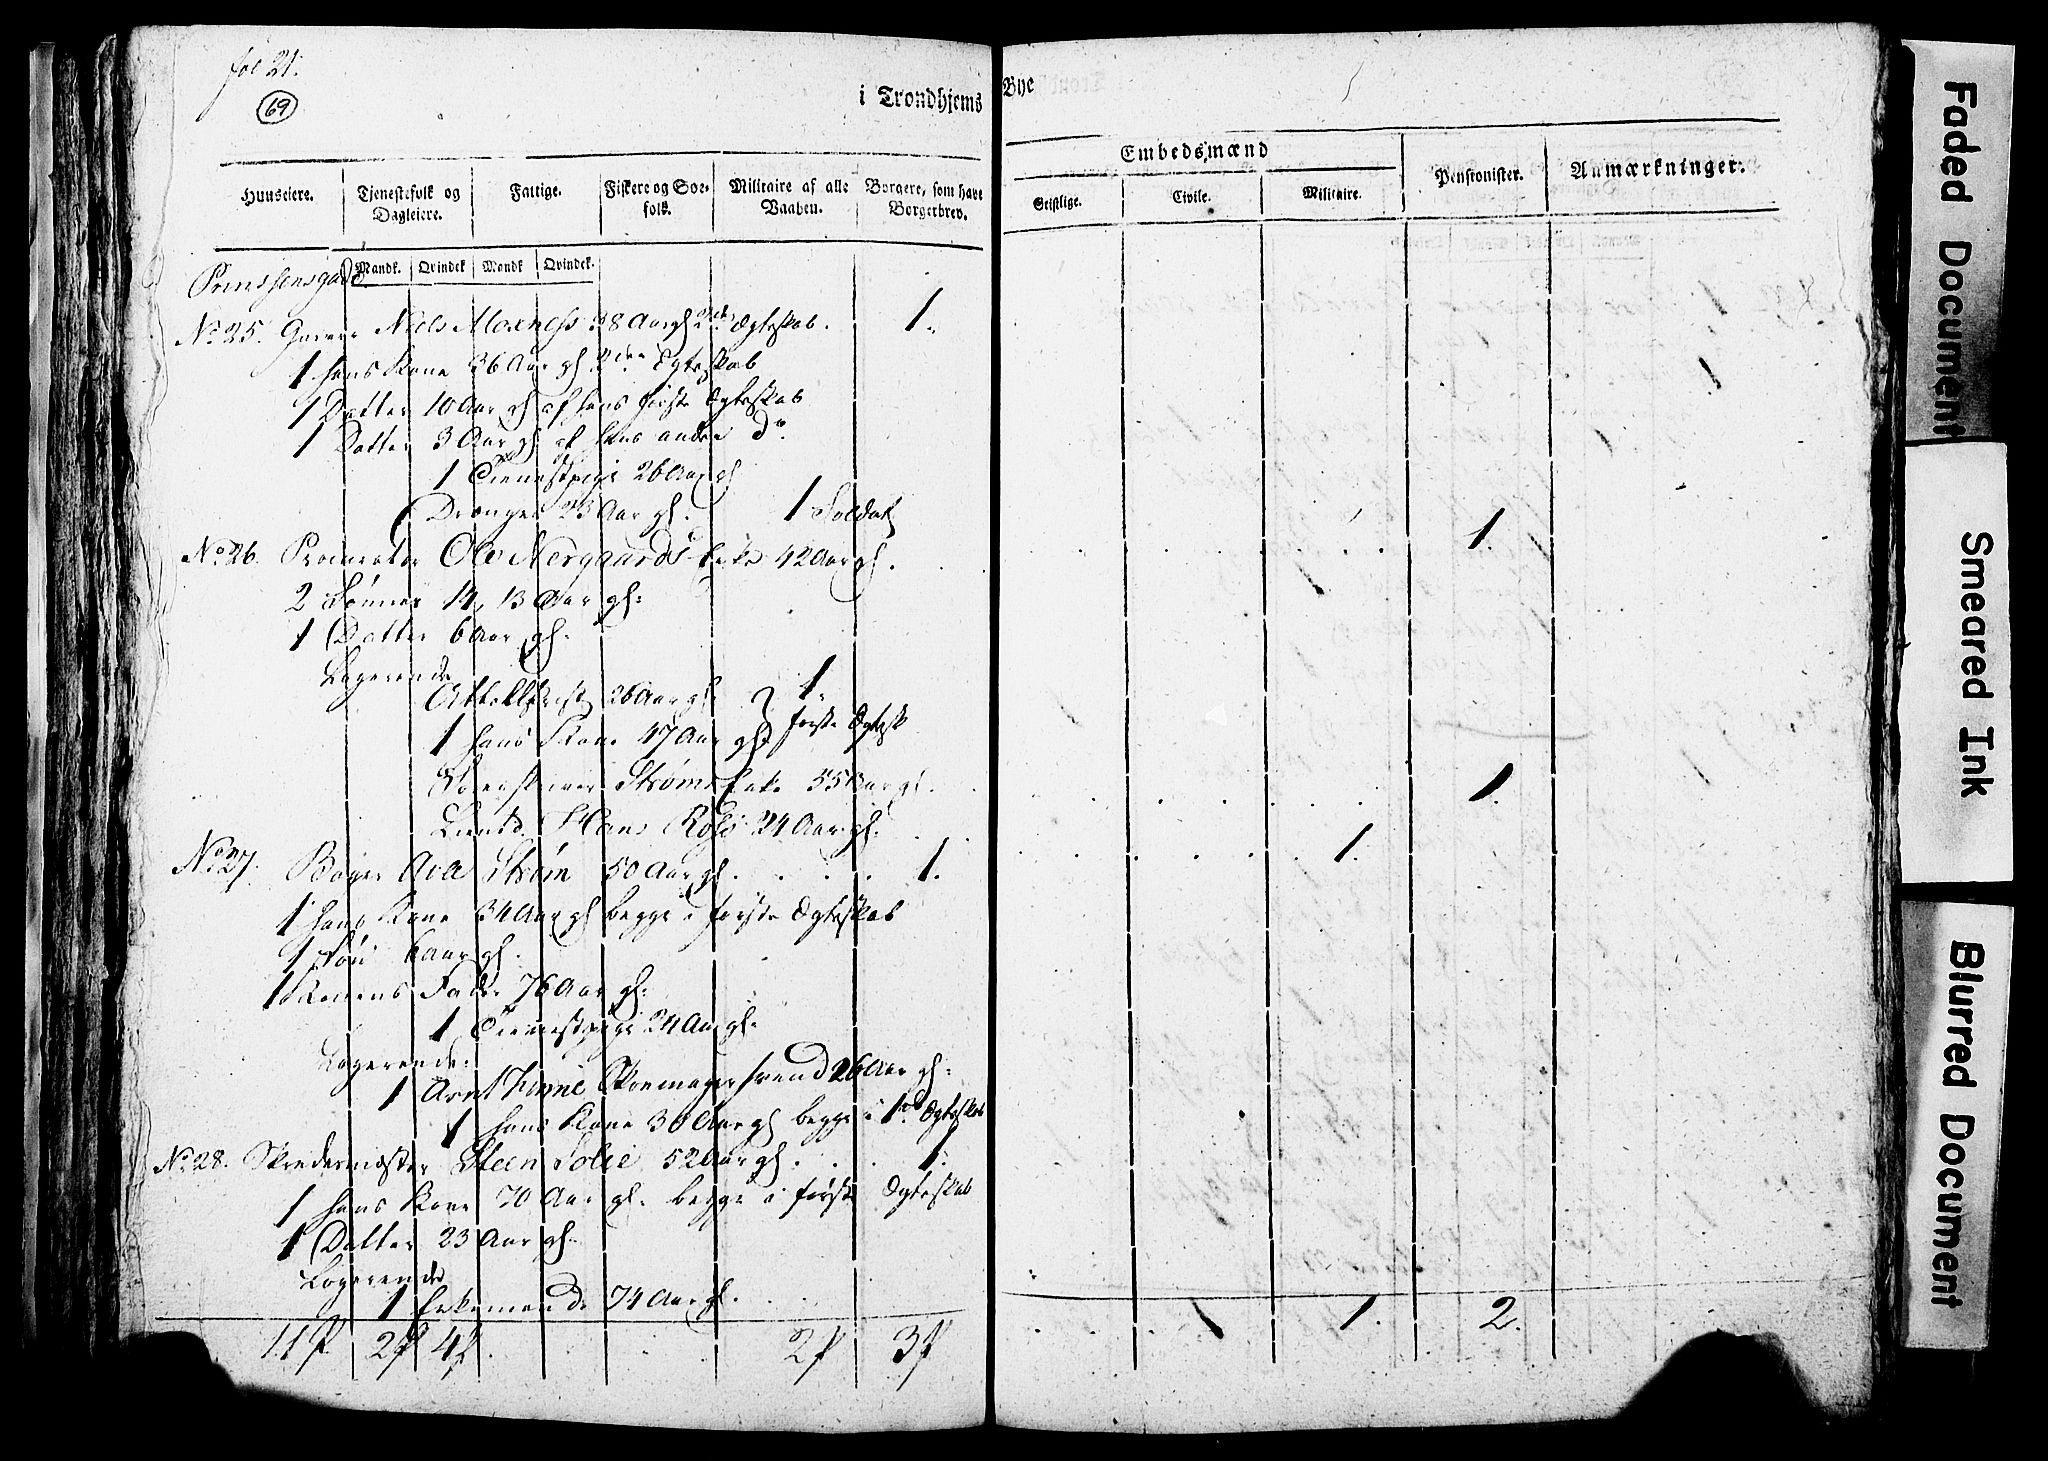 fol 21.
69
i Trondhjems Bye
Huuseiere. Tjenestefolk og Dagleiere. Fattige. Fiskere og Søe-folk. Militaire af alle Vaaben. Borgere, som have Borgerbrev.
Embedsmænd Pensionister. Anmærkninger.
Geistlige. Civile. Militaire.
Mandk. Qvindek Mandk Qvindek.
Prinsensgade
No 25. Niels Moxness 38 Aar gl 2de Ægteskab. 1.
1 hans Kone 36 Aar gl 2den Ægteskab
1 Datter 10 Aar gl af hans første Ægteskab
1 Datter 3 Aar gl af hans andet do.
1 Tienestpige 26 Aar gl
Drenge 23 Aar gl. 1 Soldat
No 26. Procurator Ole Nergaards Enke 42 Aar gl. 1.
2 Sønner 14, 13 Aar gl:
1 Datter 6 Aar gl.
Logerende
26 Aar gl 1.
1 hans Kone 47 Aar gl første Ægtesk
Strøms Enke 55 Aar gl. 1.
Lieutn. Hans 24 Aar gl. 1.
No 27. Bager Strøm 50 Aar gl. 1.
1 hans Kone 34 Aar gl begge i første Ægteskab
1 Søn 6 Aar gl.
1 Konens Fader 76 Aar gl:
1 Tienestpige 24 Aar gl.
Logerende:
1 Arnt Skoemager svend 26 Aar gl.
1 hans Kone 30 Aar gl begge i 1ste Ægteskab
No 28. Skredermester Steen Solie 52 Aar gl. 1.
1 hans Kone 70 Aar gl. begge i første Ægteskab
1 Datter 23 Aar gl.
Logerende
1 Enkemand 74 Aar gl.
11 2 4 2 3 1. 2.
Faded Document
Smeared Ink
Blurred Document